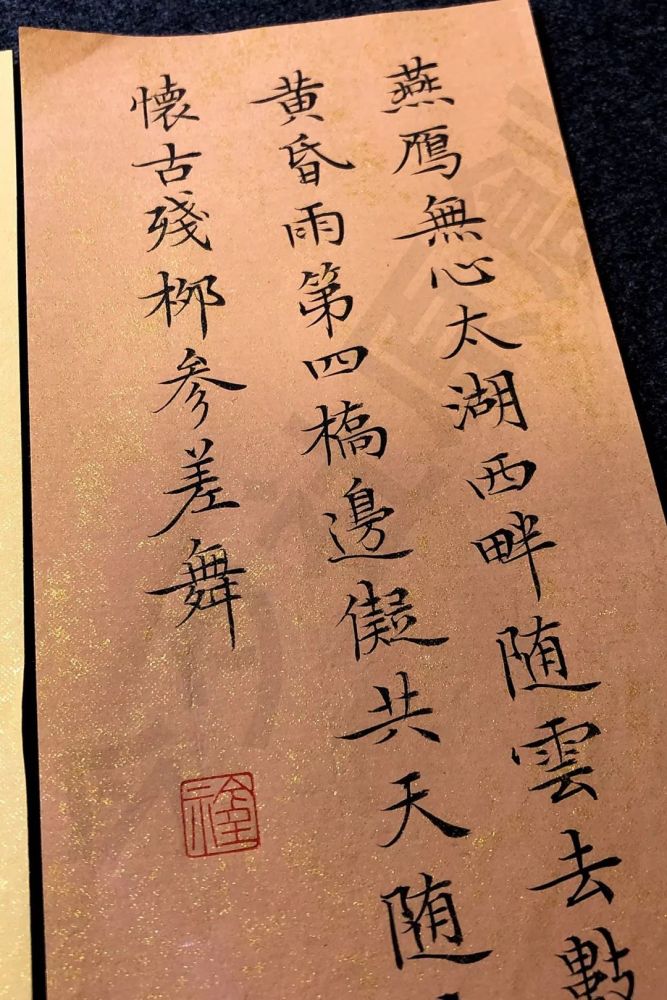 燕鴈無心太湖西畔随雲去數
黄昏雨第四橋邊儗共天随
懷古殘栁参差舞